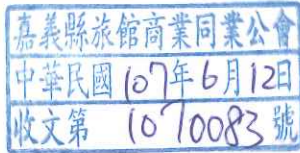 嘉義縣旅館商業同業公會
中華民國107年6月12日
收文第1070083號